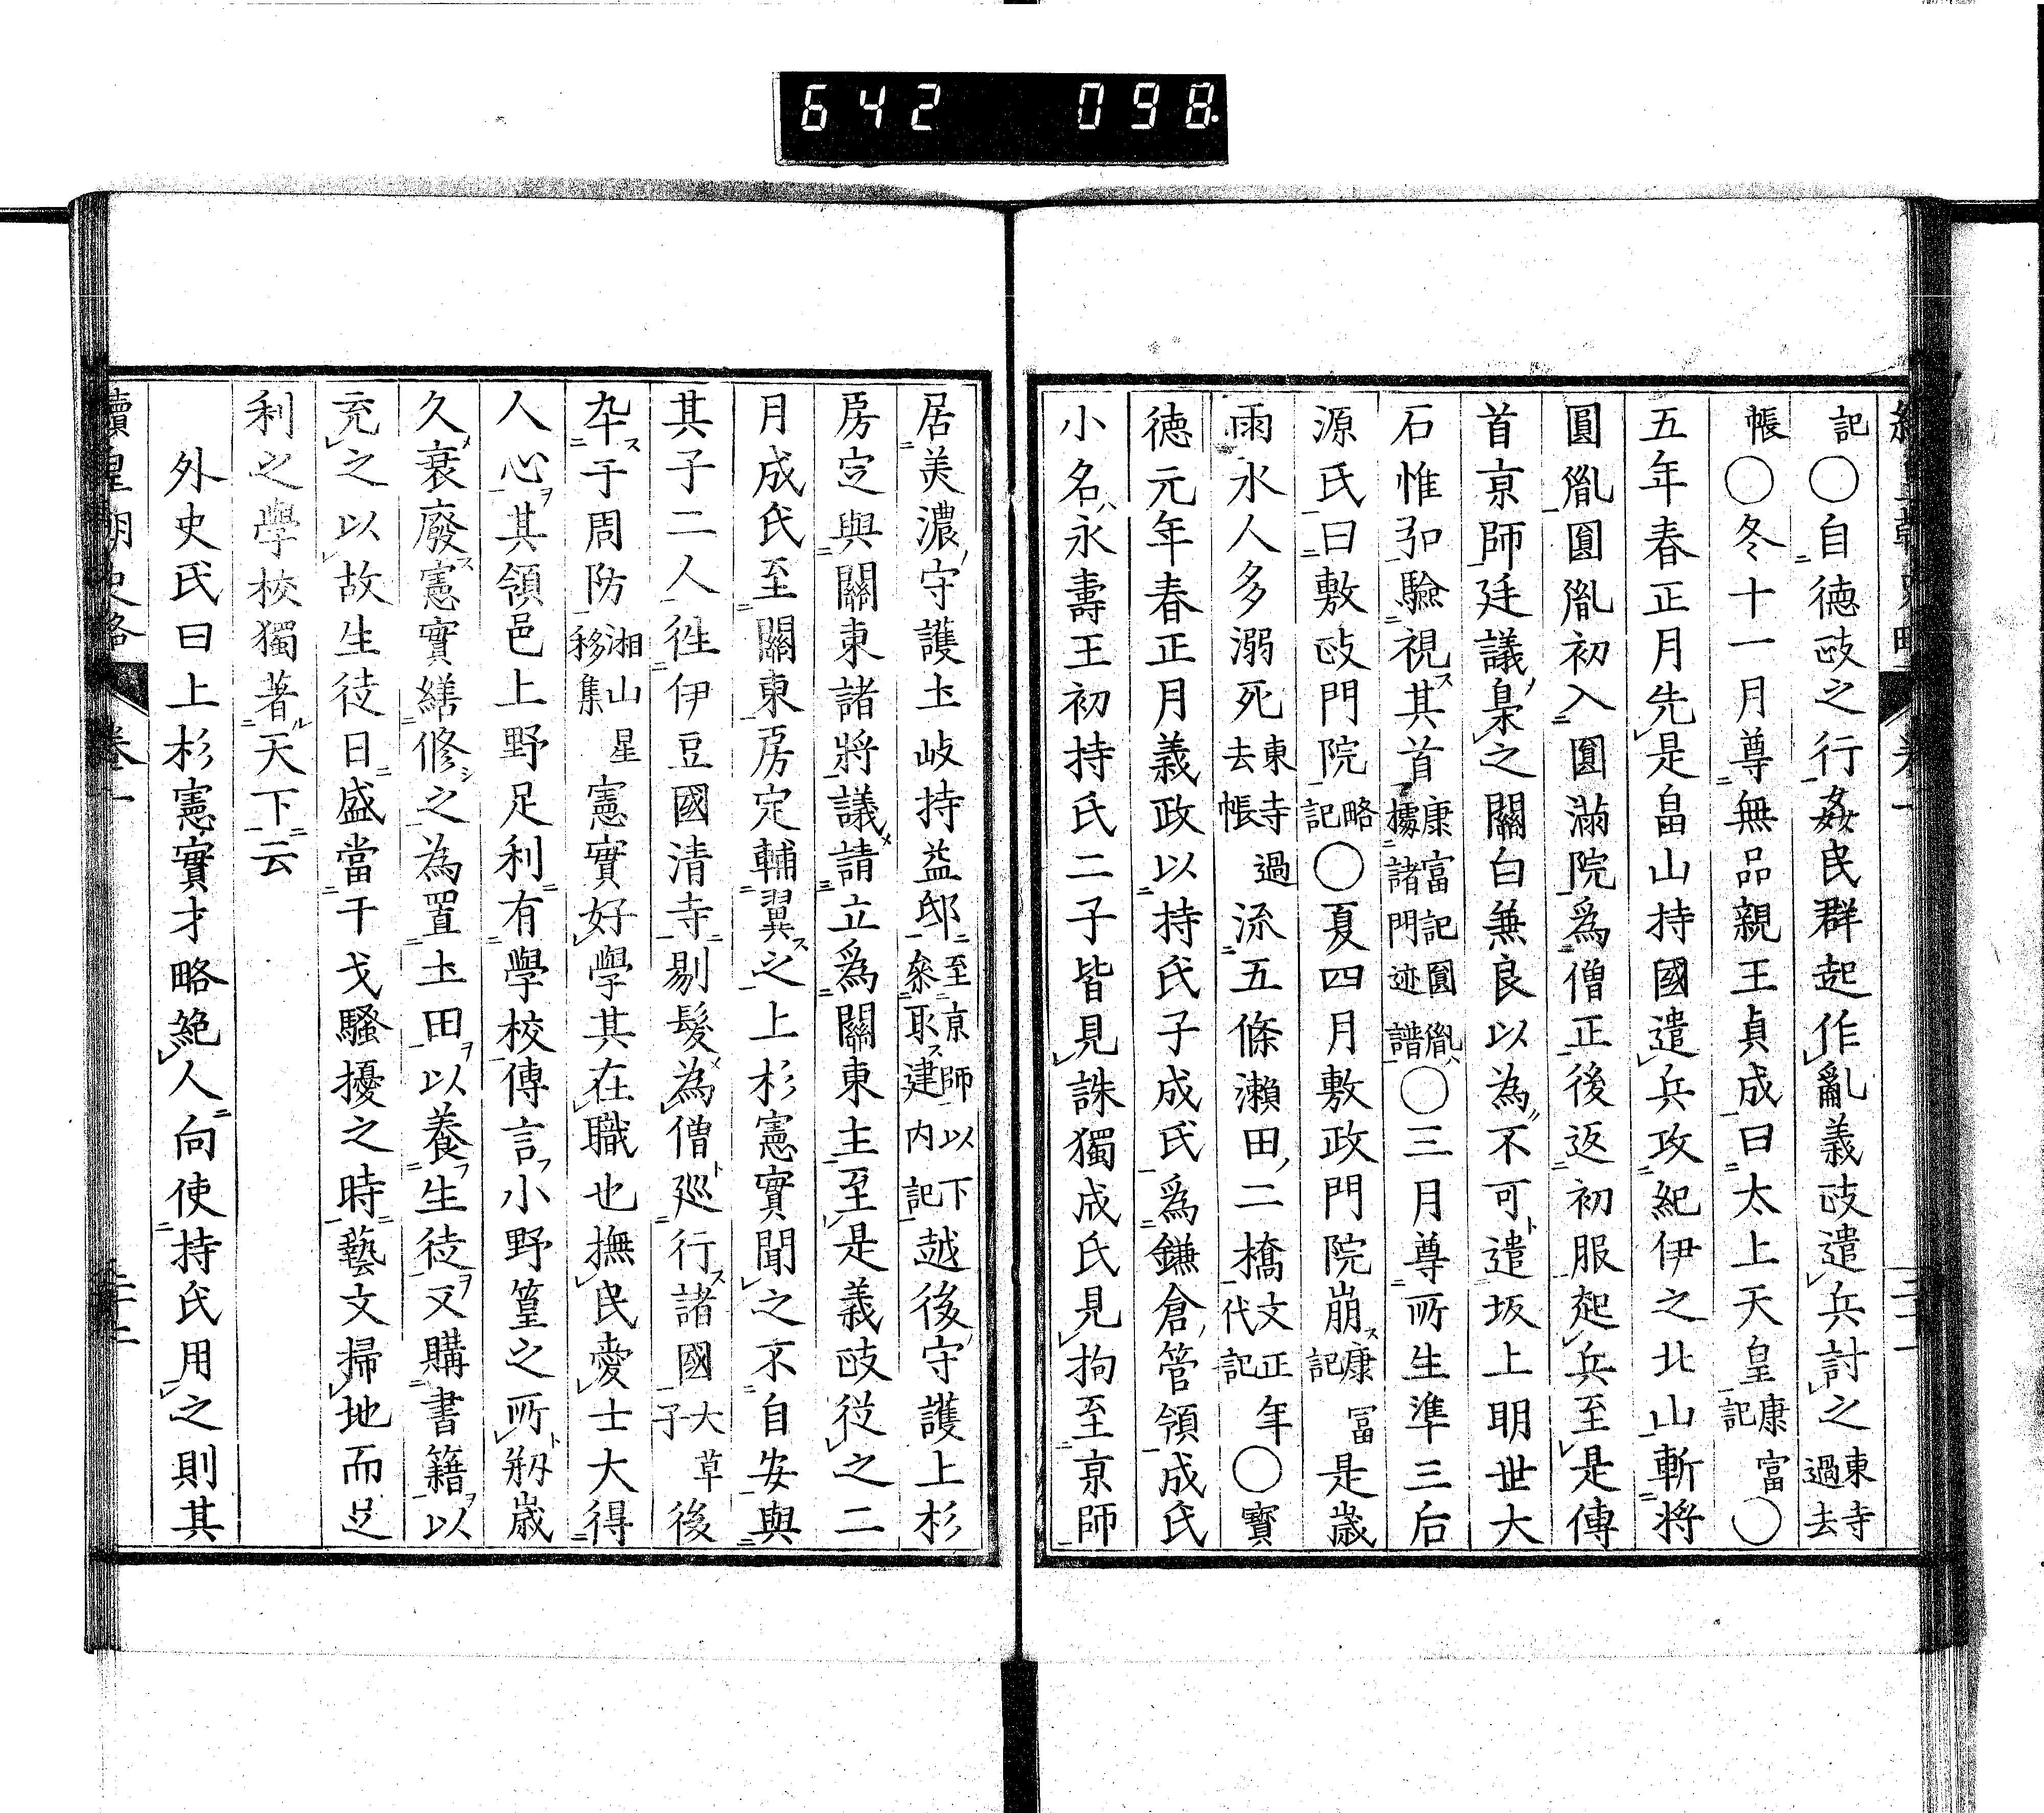 642 098
記〇自德政之行姦民群起作亂義政遣兵討之東寺過去
帳〇冬十一月尊無品親王貞成曰太上天皇康富記〇
五年春正月先是畠山持國遣兵攻紀伊之北山斬將
圓胤圓胤初入圓滿院爲僧正後返初服起兵至是傳
首京師廷議梟之關白兼良以為不可遣坂上明世大
石惟弘驗視其首康富記圓胤據諸門迹譜〇三月尊所生準三后
源氏曰敷政門院略記〇夏四月敷政門院崩康富記是歲
雨水人多溺死東寺過去帳流五條瀨田二橋文正年代記〇寶
德元年春正月義政以持氏子成氏爲鎌倉管領成氏
小名永壽王初持氏二子皆見誅獨成氏見拘至京師
居美濃守護土岐持益邸至京師以下參取建內記越後守護上杉
房定與關東諸將議請立爲關東主至是義政從之二
月成氏至關東房定輔翼之上杉憲實聞之不自安與
其子二人徃伊豆國清寺剔髮為僧巡行諸國大草子後
卒于周防湘山星移集憲實好學其在職也撫民愛士大得
人心其領邑上野足利有學校傳言小野篁之所剏歲
久衰廢憲實繕修之為置土田以養生徒又購書籍以
充之以故生徒日盛當干戈騷擾之時藝文掃地而足
利之學校獨著天下云
外史氏曰上杉憲實才略絶人向使持氏用之則其
續皇朝史略 卷一